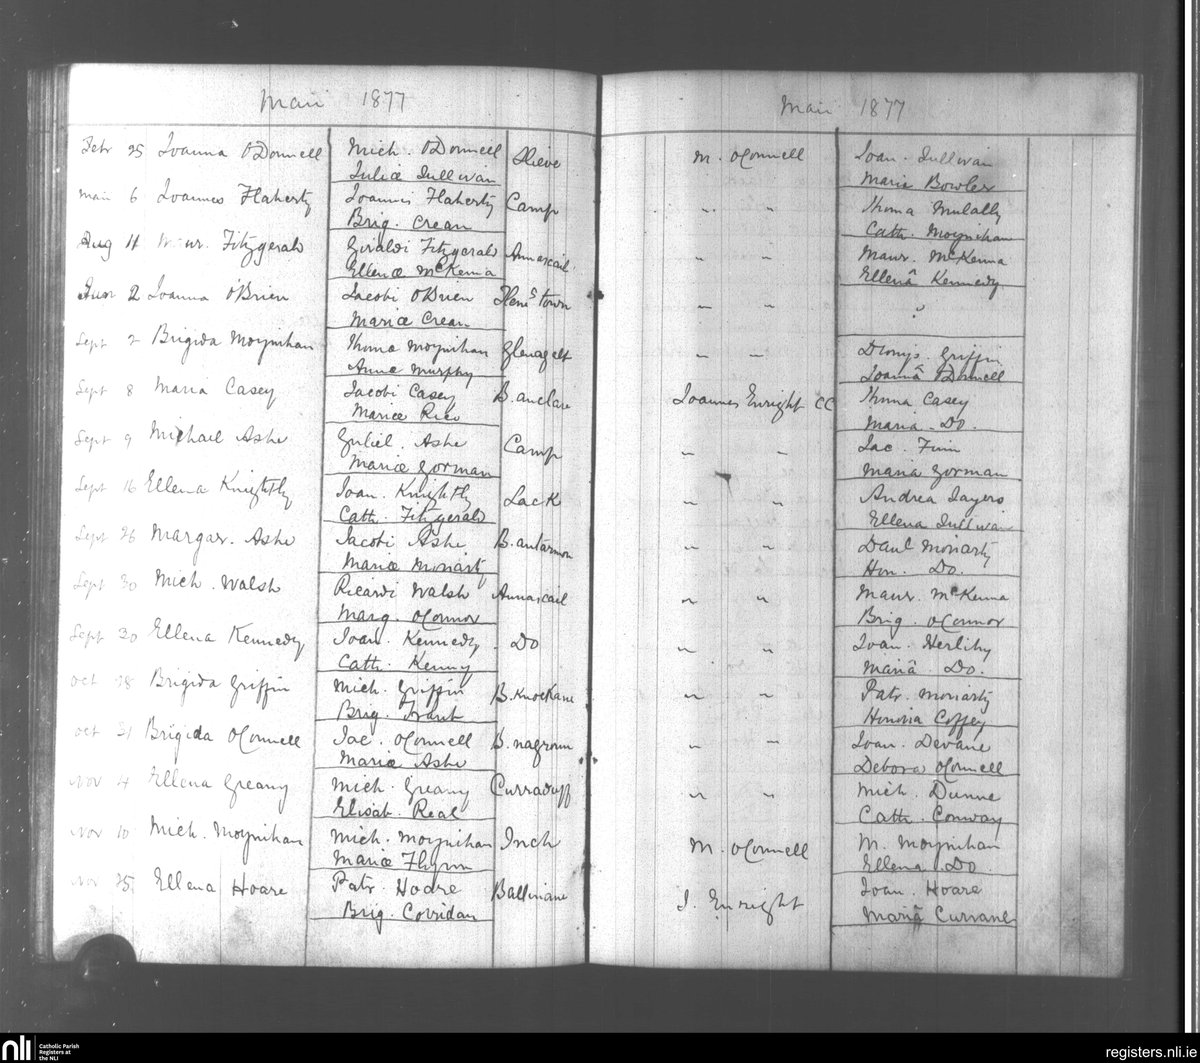 Maii 1877
Maii 1877
Febr 25 Joanna O'Donnell Mich. O'Donnell Slieve M. O'Connell Joan. Sullivan
Juliæ Sullivan Maria Bowler
Maii 6 Joannes Flaherty Joannis Flaherty Camp " " Thoma Mulally
Brig. Crean Cath. Moynihan
Aug 4 Maur. Fitzgerald Giraldi Fitzgerald Annascail " " Maur. McKenna
Ellenæ McKenna Ellenâ Kennedy
Jun 2 Joanna O'Brien Jacobi O'Brien " " ?
Mariæ Crean
Sept 2 Brigida Moynihan Thoma Moynihan Glenagelt " " Dionys. Griffin
Anna Murphy Joannâ O'Donnell
Sept 8 Maria Casey Jacobi Casey B. anclare Joannes Enright CC Thoma Casey
Mariæ Rice Maria. Do.
Sept 9 Michael Ashe Guliel. Ashe Camp " " Jac. Finn
Mariæ Gorman Mariâ Gorman
Sept 16 Ellena Knightly Joan. Knightly Lack " " Andrea Sayers
Cath. Fitzgerald Ellena Sullivan
Sept 26 Margar. Ashe Jacobi Ashe B. antarmon " " Danl Moriarty
Mariæ Moriarty Hon. Do.
Sept 30 Mich. Walsh Ricardi Walsh Annascail " " Maur. McKenna
Marg. O'Connor Brig. O'Connor
Sept 30 Ellena Kennedy Joan. Kennedy. Do " " Joan. Herlihy
Cath. Kenny Mariâ. Do.
Oct 28 Brigida Griffin Mich. Griffin B. Knockane " " Patr. Moriarty
Brig. Frant Honoria Coffey
Oct 31 Brigida O'Connell Jac. O'Connell B. nagroun " " Joan. Devane
Mariæ Ashe Debora O'Connell
Nov 4 Ellena Greany Mich. Greany Curraduff " " Mich. Dunne
Elisab. Real Cath. Conway
Nov 10 Mich. Moynihan Mich. Moynihan Inch M. O'Connell M. Moynihan
Mariæ Flynn Ellena. Do.
Nov 25 Ellena Hoare Patr. Hoare Ballinane J. Enright Joan. Hoare
Brig. Corridan Mariâ Currane
nli Catholic Parish
Registers at
the NLI
registers.nli.ie